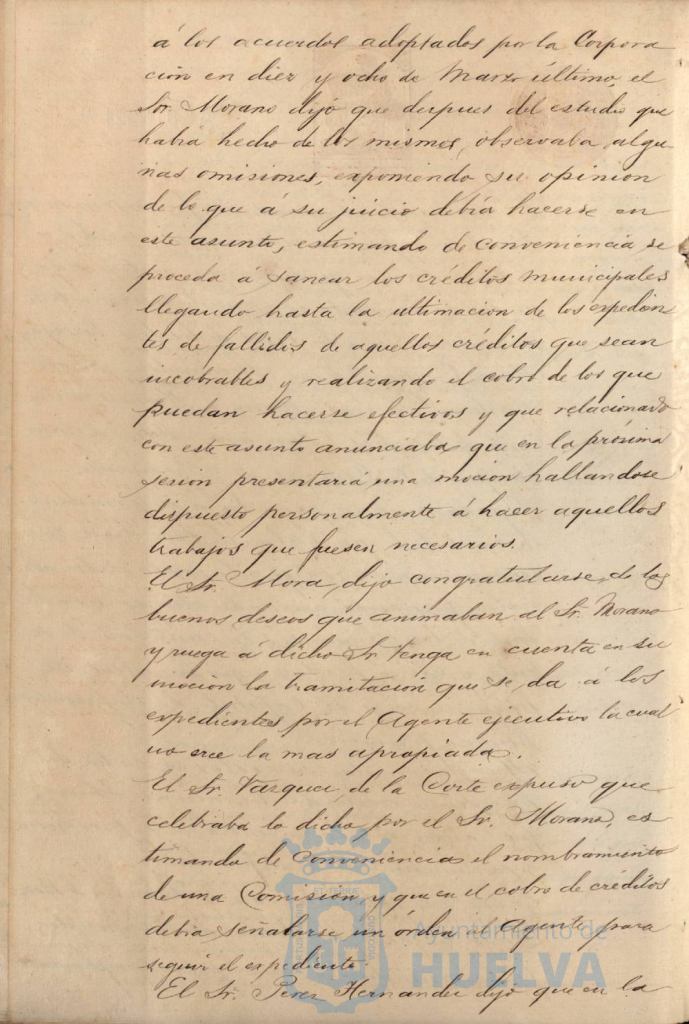 á los acuerdos adoptados por la Corpora
ción en diez y ocho de Marzo último, el
Sr. Morano dijo que despues del estudio que
habia hecho de los mismos, observaba algu
nas omisiones, exponiendo su opinion
de lo que á su juicio debia hacerse en
este asunto, estimando de conveniencia se
proceda á sanear los créditos municipales
llegando hasta la ultimacion de los expedien
tes de fallidos de aquellos créditos que sean
incobrables y realizando el cobro de los que
puedan hacerse efectivos y que relacionado
con este asunto anunciaba que en la próxima
sesion presentaria una mocion hallandose
dispuesto personalmente á hacer aquellos
trabajos que fuesen necesarios.
El Sr. Mora, dijo congratularse de los
buenos deseos que animaban al Sr. Morano
y ruega á dicho Sr. tenga en cuenta en su
mocion la tramitación que se da á los
expedientes por el Agente ejecutivo la cual
no cree la mas apropiada.
El Sr. Vazquez de la Corte expuso que
celebraba lo dicho por el Sr. Morano, es
timando de conveniencia el nombramiento
de una Comisión, y que en el cobro de créditos
debia señalarse un órden al Agente para
seguir el expediente.
El Sr. Perez Hernandez dijo que en la
Ayuntamiento de
HUELVA